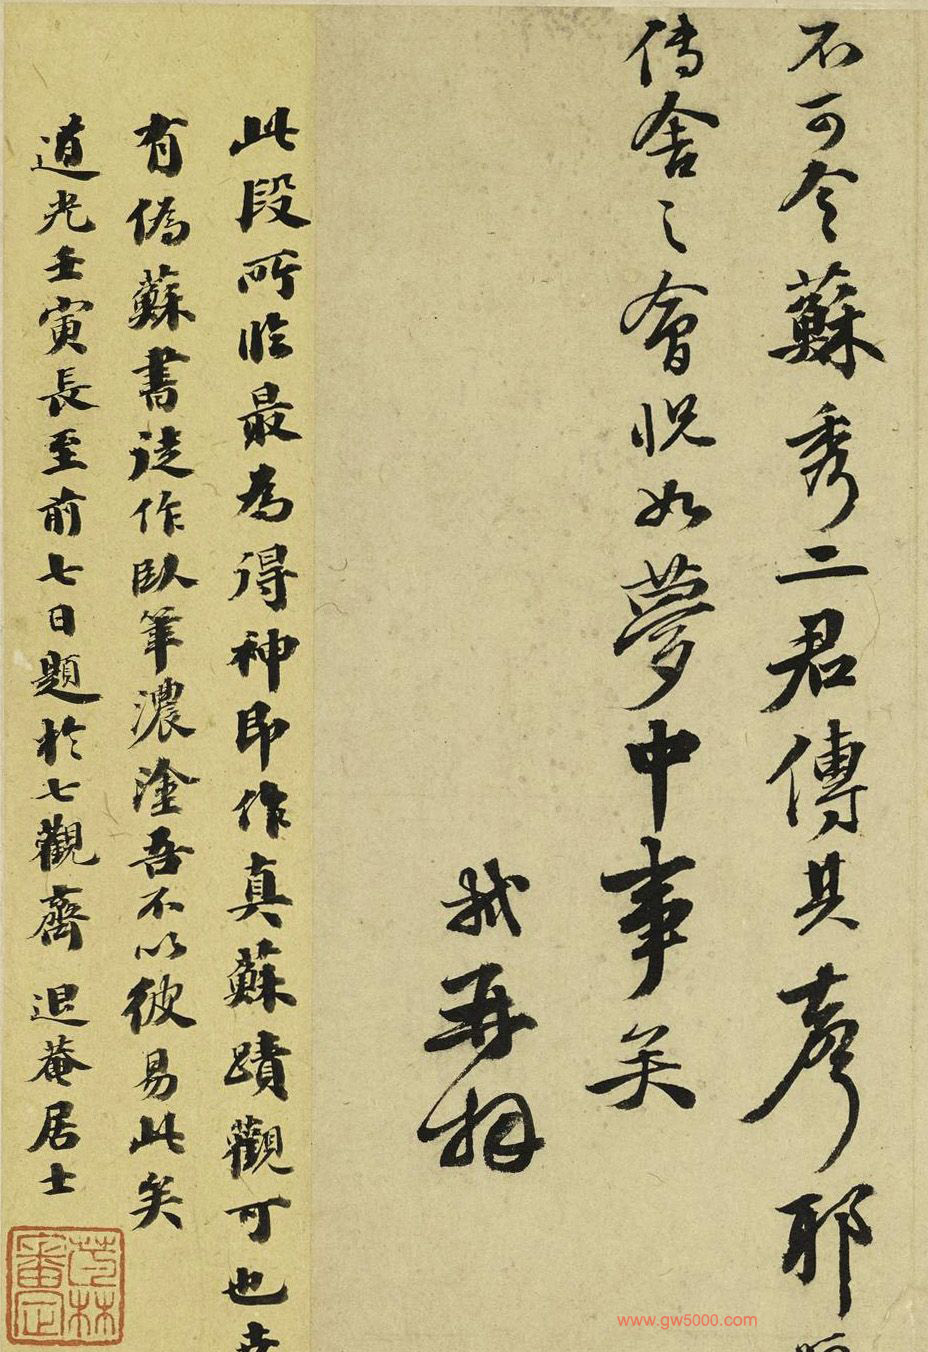 不可令蘇秀二君傳其聲耶
傳舍之會怳如夢中事矣
軾再拜
此段所临最為得神即作真蘇蹟觀可也
有偽蘇書徒作臥筆濃塗吾不以彼易此矣
道光壬寅長至前七日題於七觀齋 退菴居士
茝林審定
www.gw5000.com